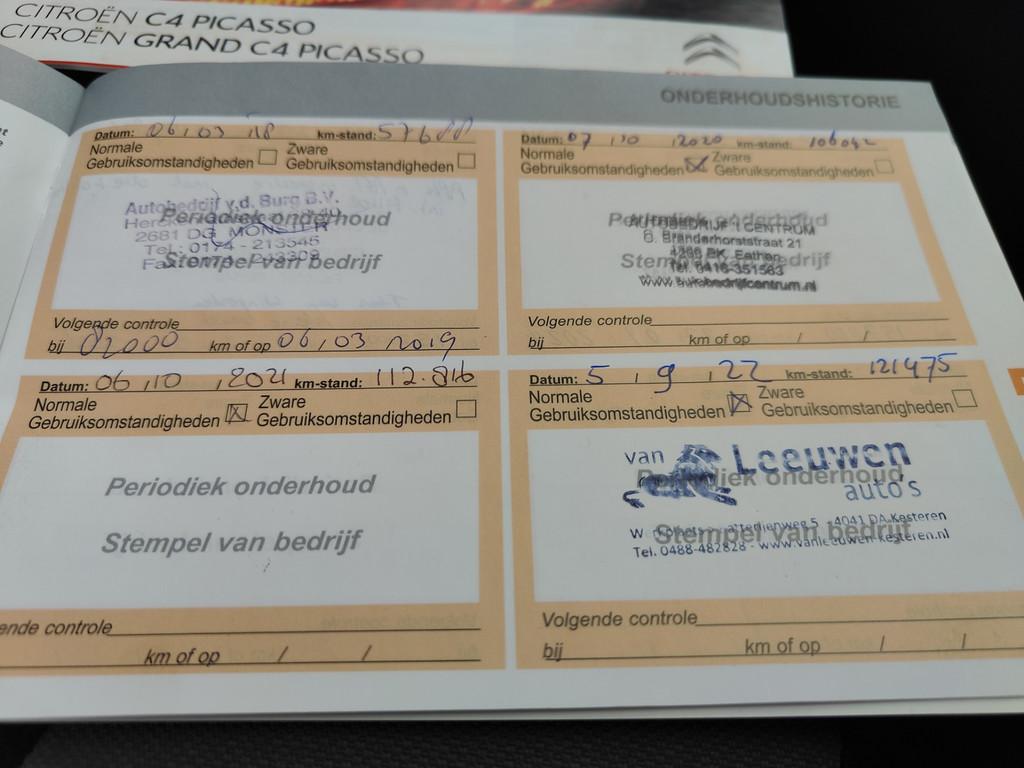 CITROËN C4 PICASSO
CITROËN GRAND C4 PICASSO
ONDERHOUDSHISTORIE
Datum: 06/03/18 km-stand: 57688
Normale
Gebruiksomstandigheden
Zware
Gebruiksomstandigheden
Autobedrijf v.d. Burg B.V.
Periodiek onderhoud
2681 DG MONSTER
Tel.: 0174 - 213545
Stempel van bedrijf
Volgende controle
bij 82000 km of op 06/03 2019
Datum: 07/10/2020 km-stand: 106042
Normale
Gebruiksomstandigheden
Zware
Gebruiksomstandigheden
Periodiek onderhoud
AUTOBEDRIJF 't CENTRUM
Branderhorststraat 21
Stempel van bedrijf
Eethen
Tel. 0416-351563
www.autobedrijfcentrum.nl
Volgende controle
bij km of op / /
Datum: 06/10/2021 km-stand: 112.816
Normale
Gebruiksomstandigheden
Zware
Gebruiksomstandigheden
Periodiek onderhoud
Stempel van bedrijf
ende controle
km of op / /
Datum: 5/9/22 km-stand: 121475
Normale
Gebruiksomstandigheden
Zware
Gebruiksomstandigheden
van Leeuwen
Periodiek onderhoud
auto's
5 - 4041 DA Kesteren
Stempel van bedrijf
Tel. 0488-482828 - www.vanleeuwen-kesteren.nl
Volgende controle
bij km of op / /